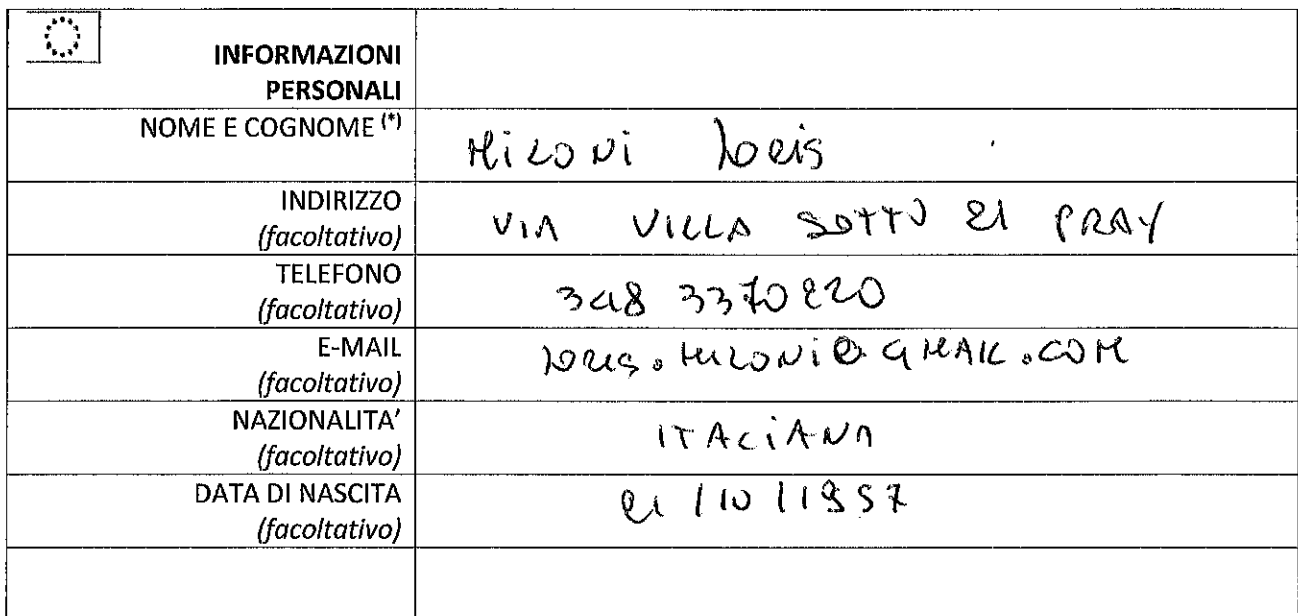 INFORMAZIONI
PERSONALI
NOME E COGNOME (*)
Miloni Loris
INDIRIZZO
(facoltativo)
VIA VILLA SOTTO 21 PRAY
TELEFONO
(facoltativo)
348 3370220
E-MAIL
(facoltativo)
LORIS.MILONI@GMAIL.COM
NAZIONALITA'
(facoltativo)
ITALIANA
DATA DI NASCITA
(facoltativo)
21/10/1957